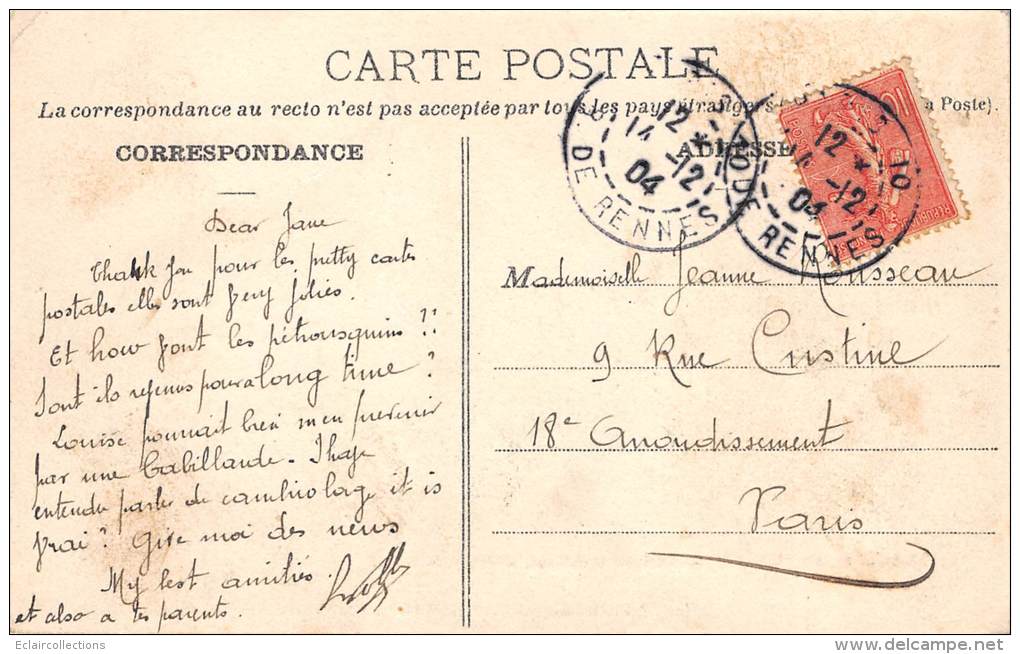 CARTE POSTALE
La correspondance au recto n'est pas acceptée par tous les pays étrangers a Poste).
CORRESPONDANCE
ADRESSE
Dear Jane
Thank you pour les pretty cartes
postales elles sont very jolies.
Et how font les pétrousquins !!
Sont ils revenus pour a long time ?
Louise pourrait bien m'en prevenir
par une Cabillaude. I have
entendu parler de cambriolage it is
vrai ? Give moi des news
My best amitiés.
et also a tes parents.
Mademoiselle Jeanne Rousseau
9 Rue Custine
18e Arrondissement
Paris
12 *
14 -12
04
DE RENNES
12 *
-12
04
DE RENNES
10
POSTES
Eclaircollections
www.delcampe.net